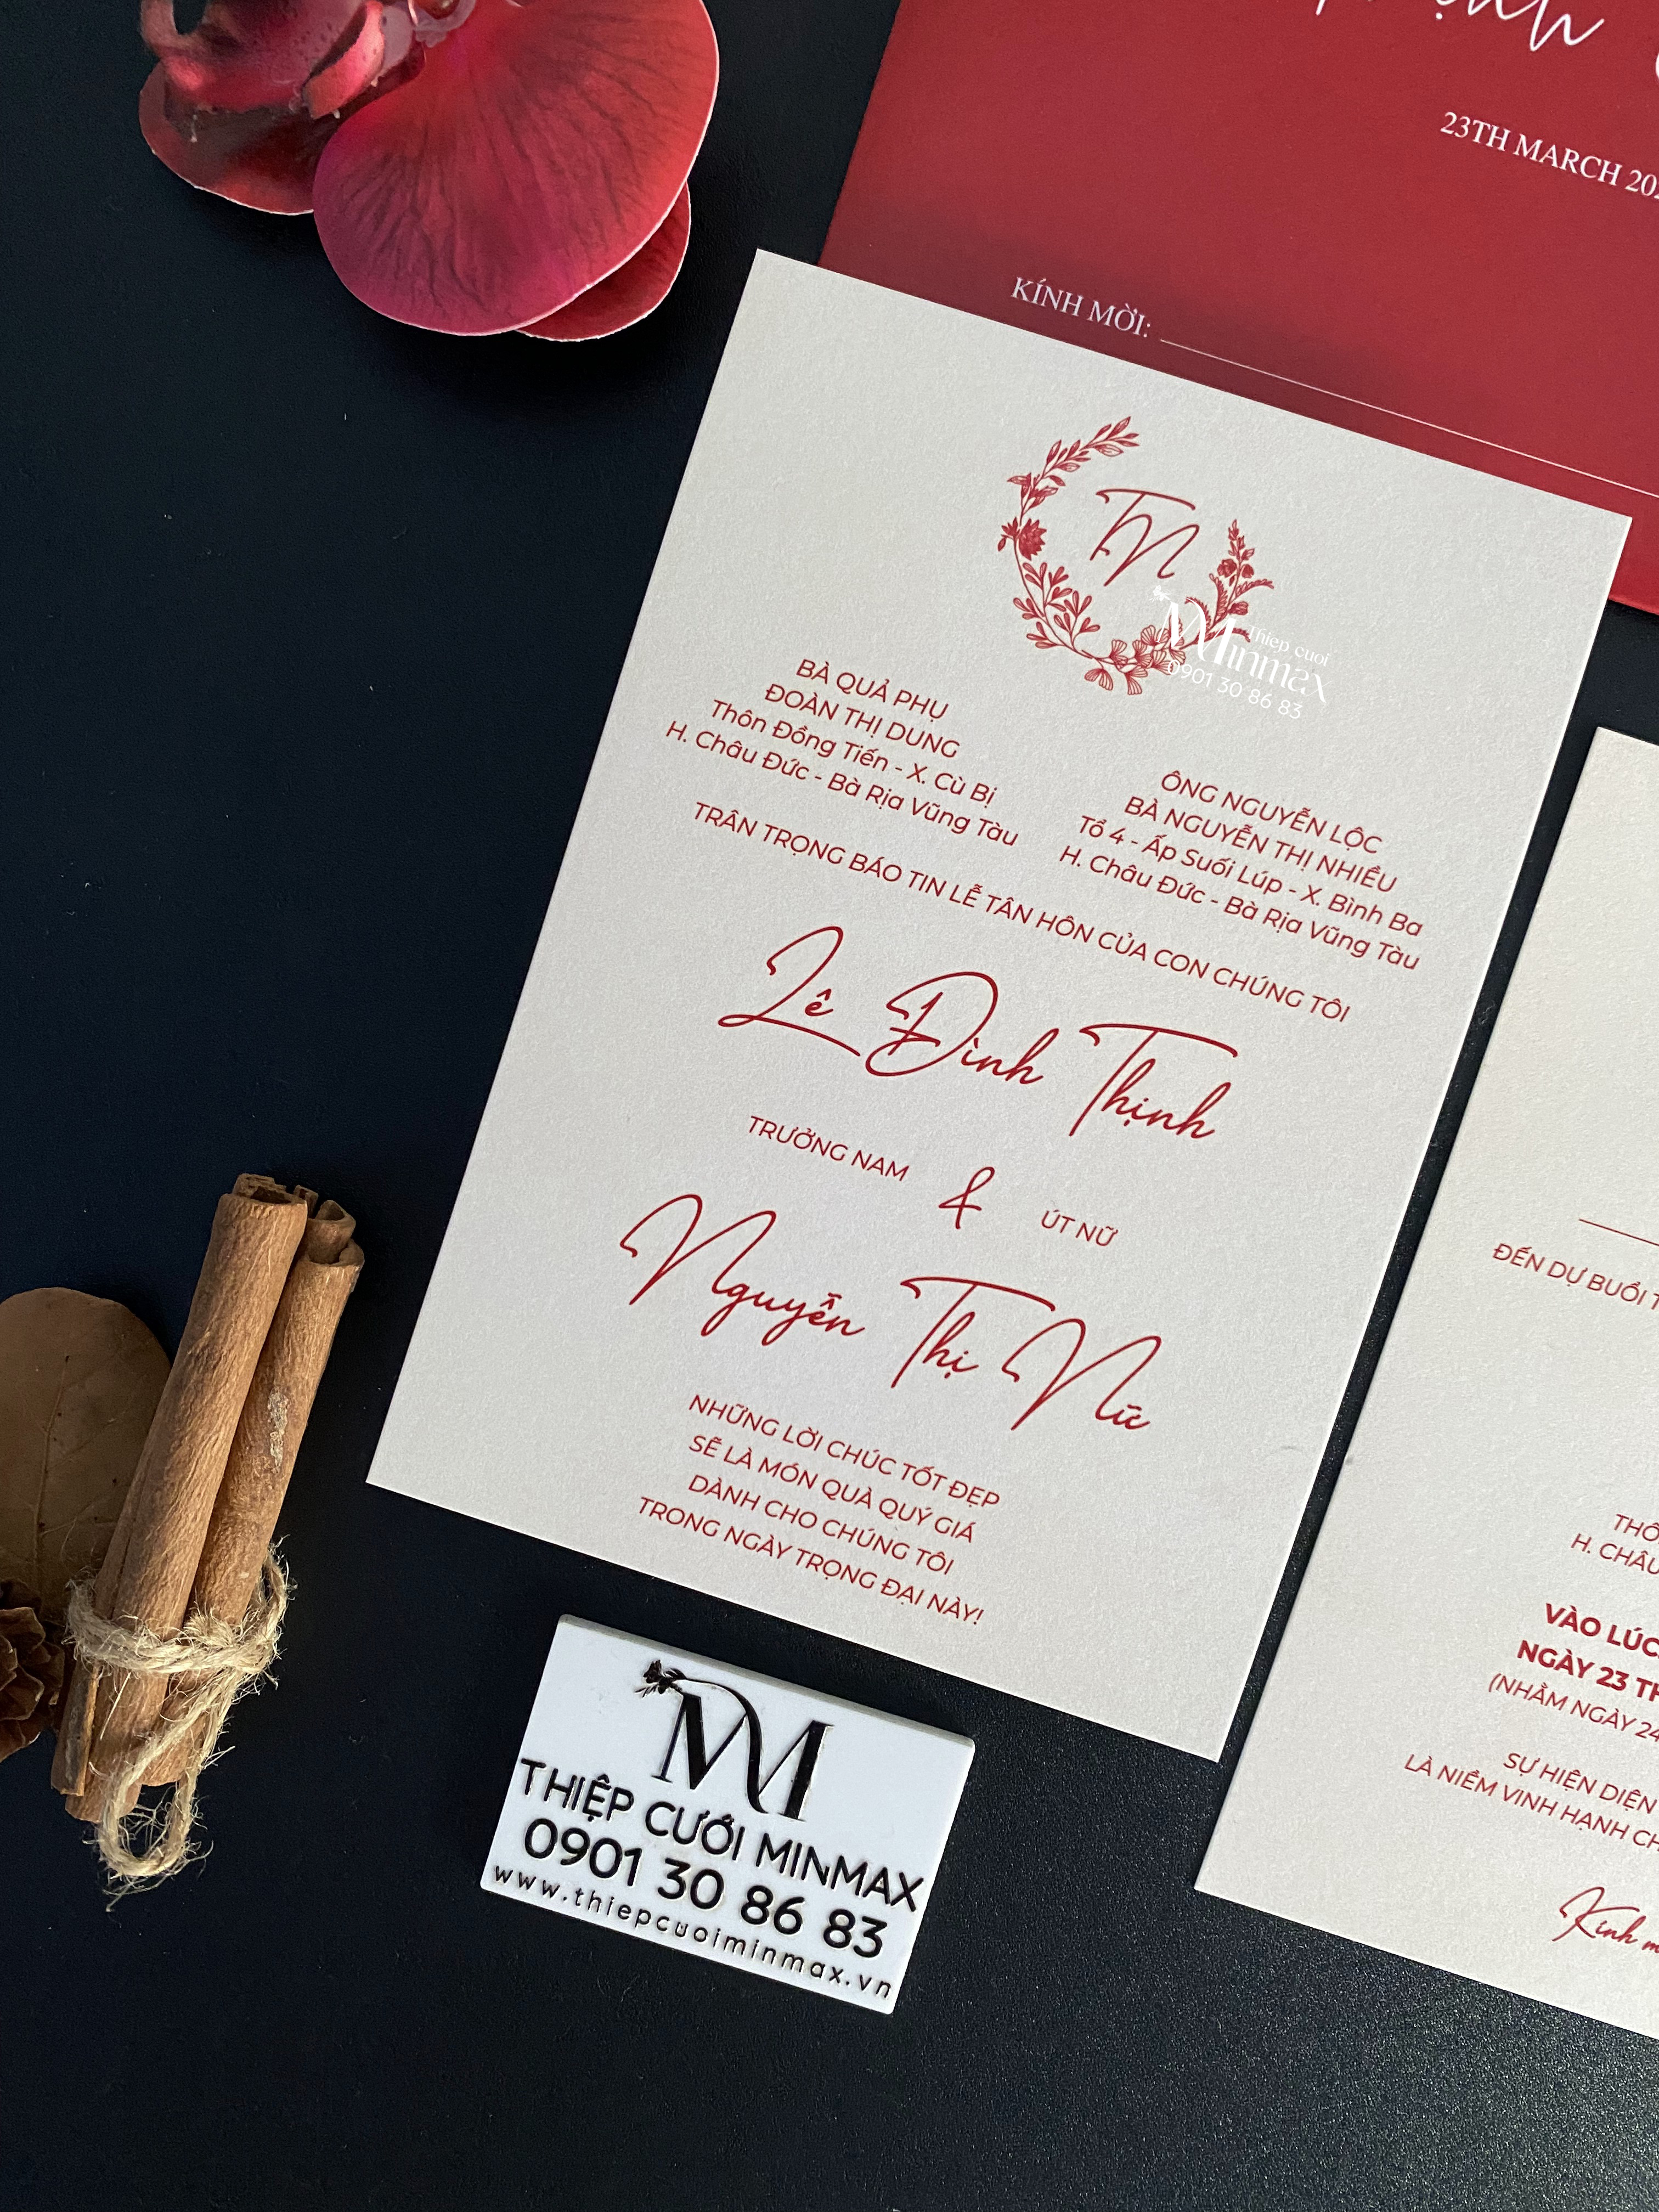 23TH MARCH
KÍNH MỜI:
TN
Thiep cuoi
Minmax
0901 30 86 83
BÀ QUẢ PHỤ
ĐOÀN THỊ DUNG
Thôn Đồng Tiến - X. Cù Bị
H. Châu Đức - Bà Rịa Vũng Tàu
ÔNG NGUYỄN LỘC
BÀ NGUYỄN THỊ NHIỀU
Tổ 4 - Ấp Suối Lúp - X. Bình Ba
H. Châu Đức - Bà Rịa Vũng Tàu
TRÂN TRỌNG BÁO TIN LỄ TÂN HÔN CỦA CON CHÚNG TÔI
Lê Đình Thịnh
TRƯỞNG NAM & ÚT NỮ
Nguyễn Thị Nữ
NHỮNG LỜI CHÚC TỐT ĐẸP
SẼ LÀ MÓN QUÀ QUÝ GIÁ
DÀNH CHO CHÚNG TÔI
TRONG NGÀY TRỌNG ĐẠI NÀY!
ĐẾN DỰ BUỔI
H. CHÂU
VÀO LÚC
NGÀY 23
(NHẰM NGÀY 24
SỰ HIỆN DIỆN
LÀ NIỀM VINH HẠNH
Kính
M
THIỆP CƯỚI MINMAX
0901 30 86 83
www.thiepcuoiminmax.vn